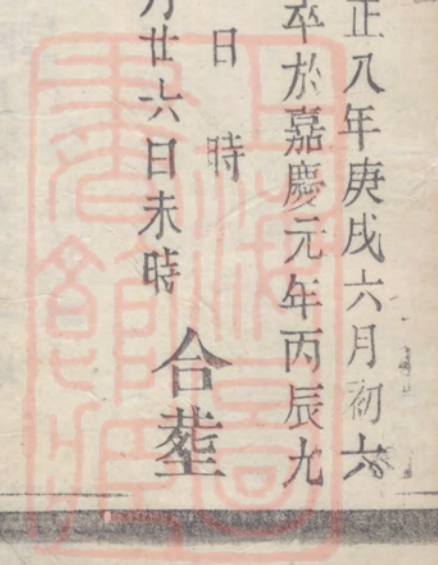 正八年庚戌六月初六
卒於嘉慶元年丙辰九
日 時
月廿六日未時 合塟